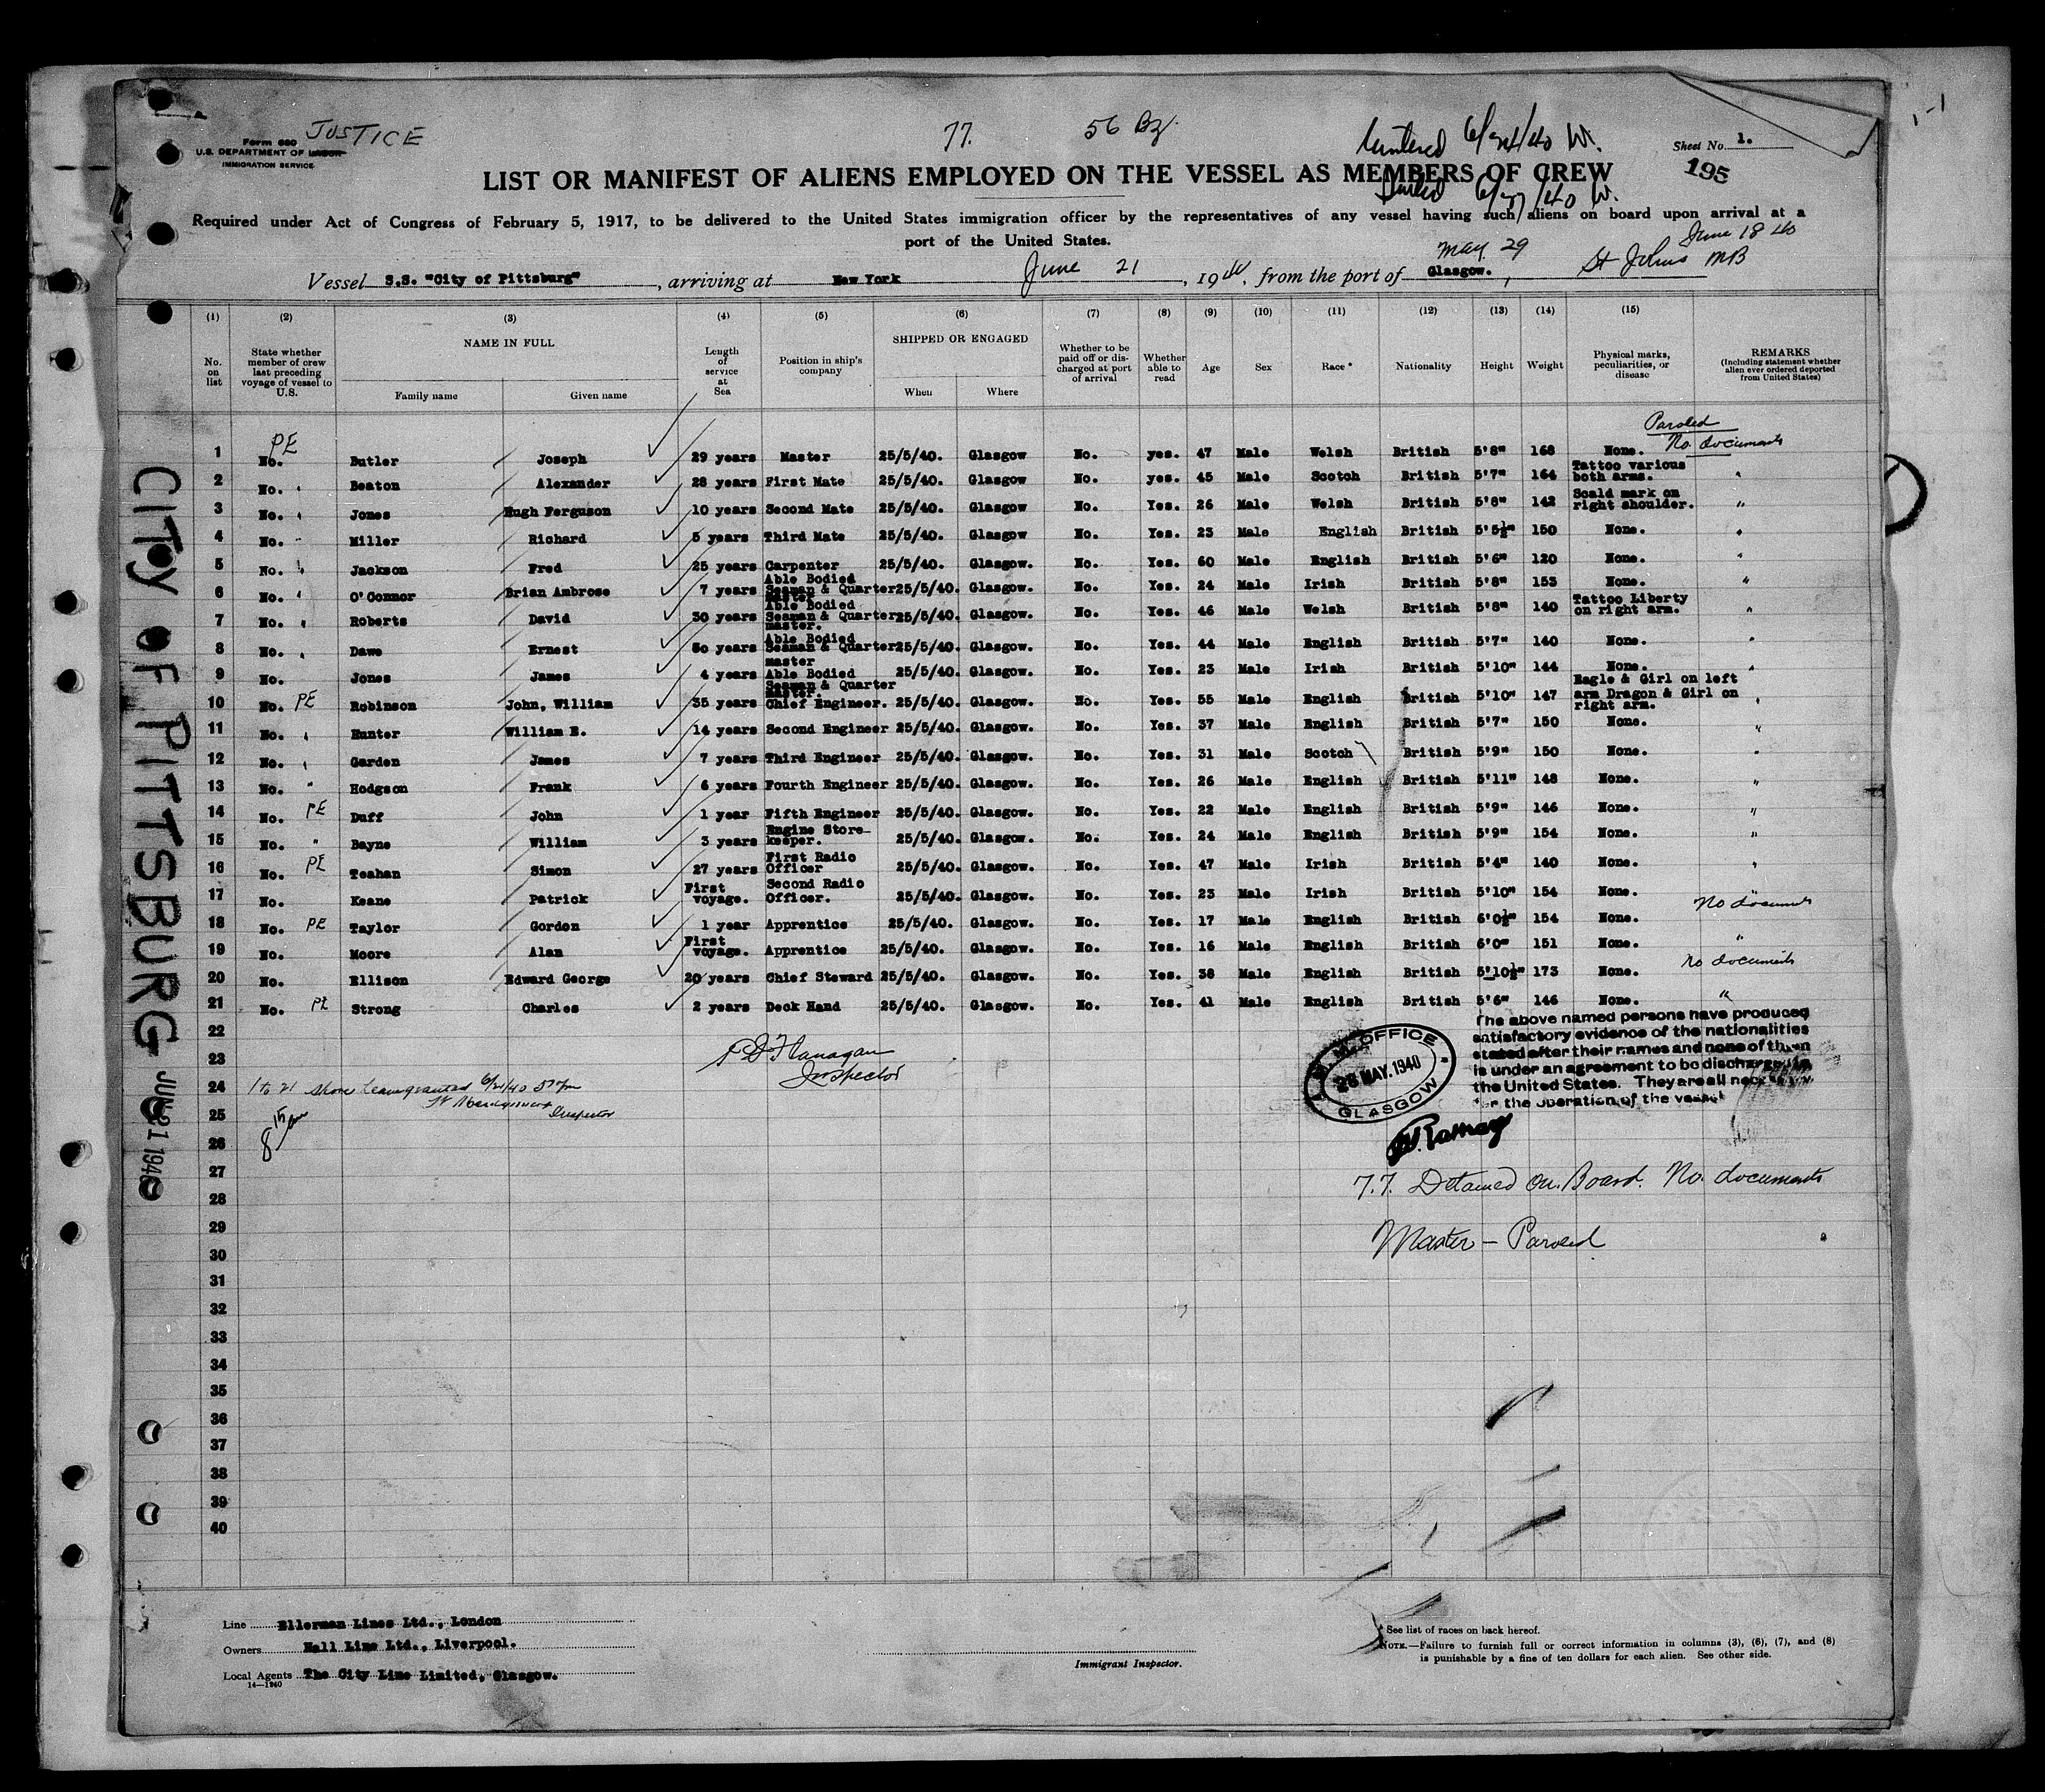 Form 680
JUSTICE
U.S. DEPARTMENT OF LABOR
IMMIGRATION SERVICE
77.
56
6/24/40 W.
6/27/40 W.
Sheet No. 1.
195
LIST OR MANIFEST OF ALIENS EMPLOYED ON THE VESSEL AS MEMBERS OF CREW
Required under Act of Congress of February 5, 1917, to be delivered to the United States immigration officer by the representatives of any vessel having such aliens on board upon arrival at a
port of the United States.
May. 29
June 18 40
Vessel S.S. "City of Pittsburg", arriving at New York June 21, 1940, from the port of Glasgow., St Johns
(1) (2) (3) (4) (5) (6) (7) (8) (9) (10) (11) (12) (13) (14) (15)
No. on list
State whether member of crew last preceding voyage of vessel to U.S.
NAME IN FULL
Family name
Given name
Length of service at Sea
Position in ship's company
SHIPPED OR ENGAGED
When
Where
Whether to be paid off or discharged at port of arrival
Whether able to read
Age
Sex
Race*
Nationality
Height
Weight
Physical marks, peculiarities, or disease
REMARKS
(Including statement whether alien ever ordered deported from United States)
Paroled
1 No. PE Butler Joseph 29 years Master 25/5/40. Glasgow No. yes. 47 Male Welsh British 5'8" 168 None. No. documents
2 No. " Beaton Alexander 28 years First Mate 25/5/40. Glasgow No. yes. 45 Male Scotch British 5'7" 164 Tattoo various both arms. "
3 No. " Jones Hugh Ferguson 10 years Second Mate 25/5/40. Glasgow No. Yes. 26 Male Welsh British 5'8" 142 Scald mark on right shoulder. "
4 No. " Miller Richard 5 years Third Mate 25/5/40. Glasgow No. Yes. 23 Male English British 5'5½" 150 None. "
5 No. " Jackson Fred 25 years Carpenter 25/5/40. Glasgow. No. Yes. 60 Male English British 5'6" 120 None. "
6 No. " O'Connor Brian Ambrose 7 years Able Bodied Seaman & Quarter master 25/5/40. Glasgow. No. Yes. 24 Male Irish British 5'8" 153 None. "
7 No. " Roberts David 30 years Able Bodied Seaman & Quarter master. 25/5/40. Glasgow. No. Yes. 46 Male Welsh British 5'8" 140 Tattoo Liberty on right arm. "
8 No. " Dawe Ernest years Able Bodied Seaman & Quarter master 25/5/40. Glasgow. No. Yes. 44 Male English British 5'7" 140 None. "
9 No. Jones James 4 years Able Bodied Seaman & Quarter master. 25/5/40. Glasgow. No. Yes. 23 Male Irish British 5'10" 144 None. "
10 No. PE Robinson John, William 35 years Chief Engineer. 25/5/40. Glasgow. No. Yes. 55 Male English British 5'10" 147 Eagle & Girl on left arm Dragon & Girl on right arm. "
11 No. " Hunter William E. 14 years Second Engineer 25/5/40. Glasgow. No. Yes. 37 Male English British 5'7" 150 None. "
12 No. " Garden James 7 years Third Engineer 25/5/40. Glasgow. No. Yes. 31 Male Scotch British 5'9" 150 None. "
13 No. " Hodgson Frank 6 years Fourth Engineer 25/5/40. Glasgow. No. Yes. 26 Male English British 5'11" 148 None. "
14 No. PE Duff John 1 year Fifth Engineer 25/5/40. Glasgow. No. Yes. 22 Male English British 5'9" 146 None. "
15 No. " Bayne William 3 years Engine Store-keeper. 25/5/40. Glasgow. No. Yes. 24 Male English British 5'9" 154 None. "
16 No. PE Teahan Simon 27 years First Radio Officer 25/5/40. Glasgow. No. Yes. 47 Male Irish British 5'4" 140 None. "
17 No. Keane Patrick First voyage. Second Radio Officer. 25/5/40. Glasgow. No. Yes. 23 Male Irish British 5'10" 154 None. "
18 No. PE Taylor Gordon 1 year Apprentice 25/5/40. Glasgow. No. Yes. 17 Male English British 6'0½" 154 None. No documents
19 No. Moore Alan First voyage. Apprentice 25/5/40. Glasgow. No. Yes. 16 Male English British 6'0" 151 None. "
20 No. Ellison Edward George 20 years Chief Steward 25/5/40. Glasgow. No. Yes. 38 Male English British 5'10½" 173 None. No documents
21 No. PE Strong Charles 2 years Deck Hand 25/5/40. Glasgow. No. Yes. 41 Male English British 5'6" 146 None. "
22
23
24
25
26
27
28
29
30
31
32
33
34
35
36
37
38
39
40
Flanagan
Inspector
1 to 21 Shore Leave granted 6/21/40
Inspector
8 15 am
M. M. OFFICE
28 MAY. 1940
GLASGOW
The above named persons have produced
satisfactory evidence of the nationalities
stated after their names and none of them
is under an agreement to be discharged in
the United States. They are all
for the operation of the vessel
Ramay
Detained on Board. No. documents
Master - Paroled
CITY OF PITTSBURG JUN 21 1940
Line Ellerman Lines Ltd., London
Owners Hall Line Ltd., Liverpool.
Local Agents The City Line Limited, Glasgow.
14—1240
Immigrant Inspector.
* See list of races on back hereof.
NOTE.—Failure to furnish full or correct information in columns (3), (6), (7), and (8)
is punishable by a fine of ten dollars for each alien. See other side.